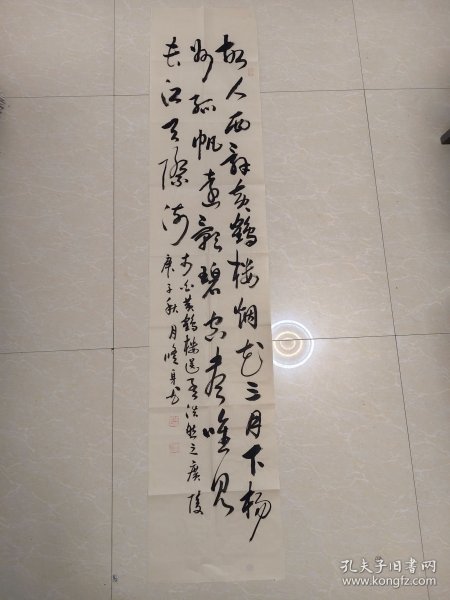 故人西辞黄鹤楼烟花三月下杨
州孤帆远影碧空尽唯见
长江天际流
李白黄鹤楼送孟浩然之广陵
庚子秋月
孔夫子旧书网
www.kongfz.com